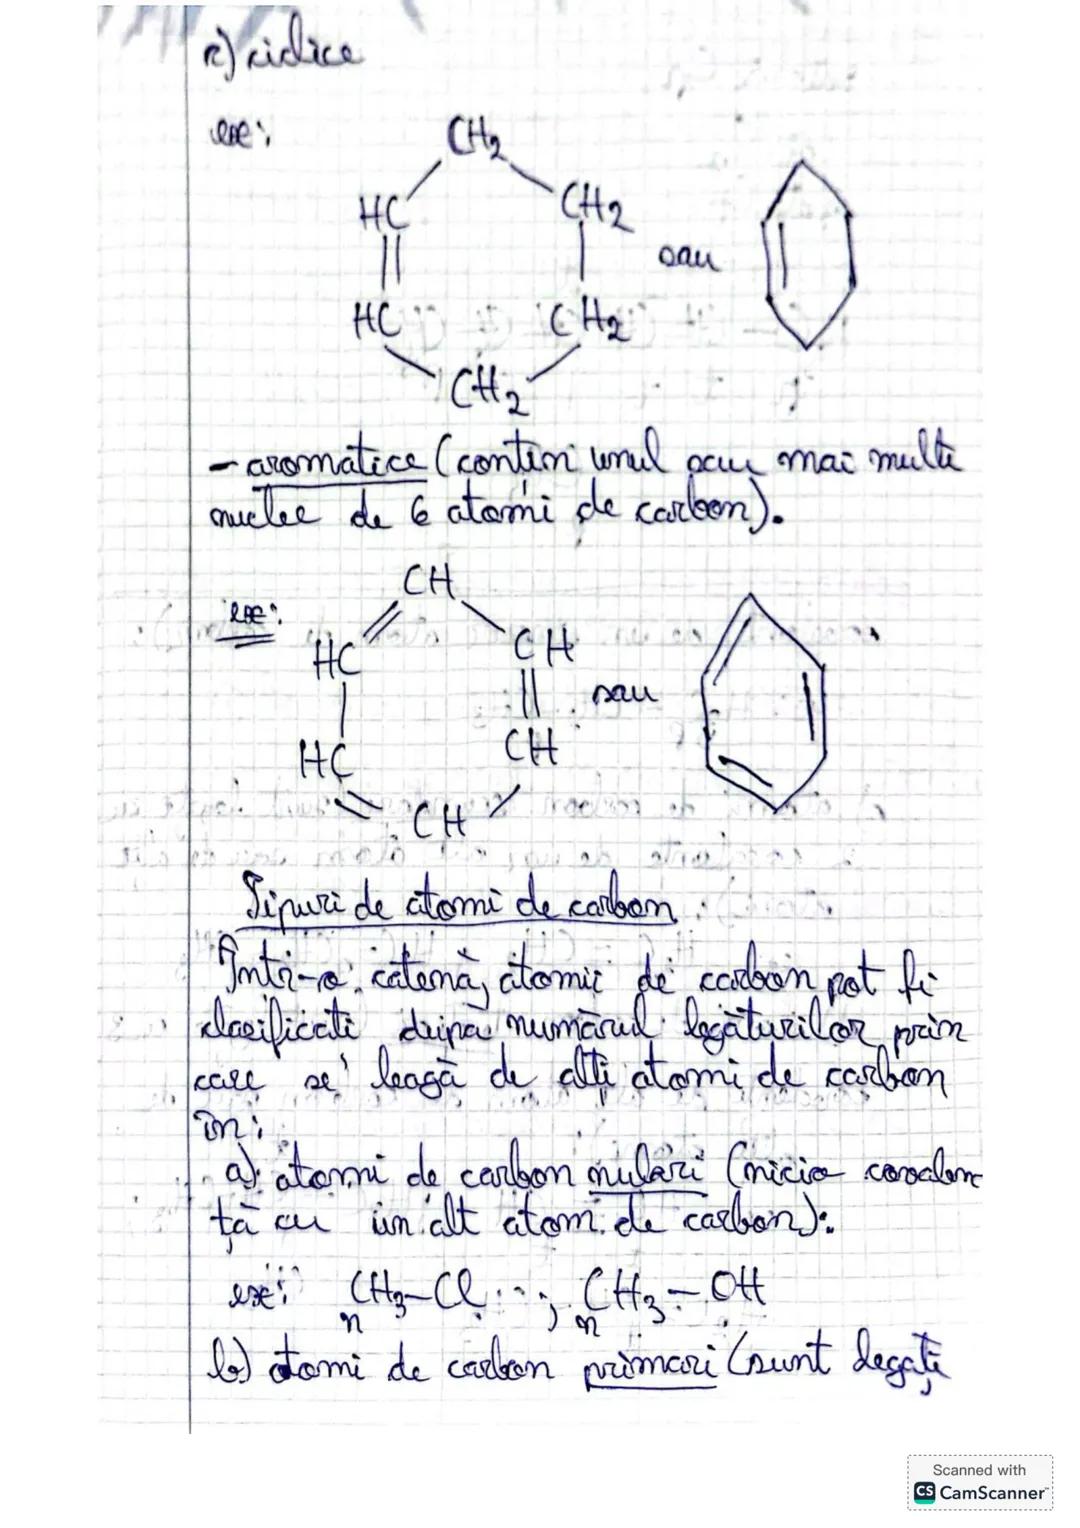 c) ciclice
exe:
CH2
HC CH2
sau
HC CH2
CH2
- aromatice (conțin unul sau mai multe
nuclee de 6 atomi de carbon).
exe:
CH
HC CH
sau
HC CH
CH
Tipuri de atomi de carbon
Într-o catenă, atomii de carbon pot fi
clasificati după numărul legăturilor prin
care se leagă de alți atomi de carbon
în:
a) atomi de carbon nulari (nicio covalen
ță cu un alt atom de carbon):
exe: CH3-Cl ; CH3-OH
n n
b) atomi de carbon primari (sunt legați
Scanned with
CS CamScanner